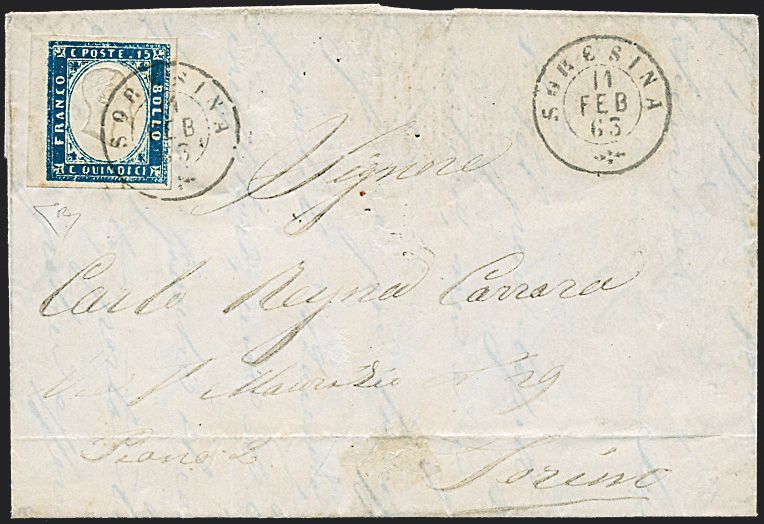 C POSTE 15
FRANCO
BOLLO
C QUINDICI
SORESINA
11
FEB
63
SORESINA
11
FEB
63
Signore
Carlo Reyna Carrara
Via S Maurizio N 29
Piano 2
Torino